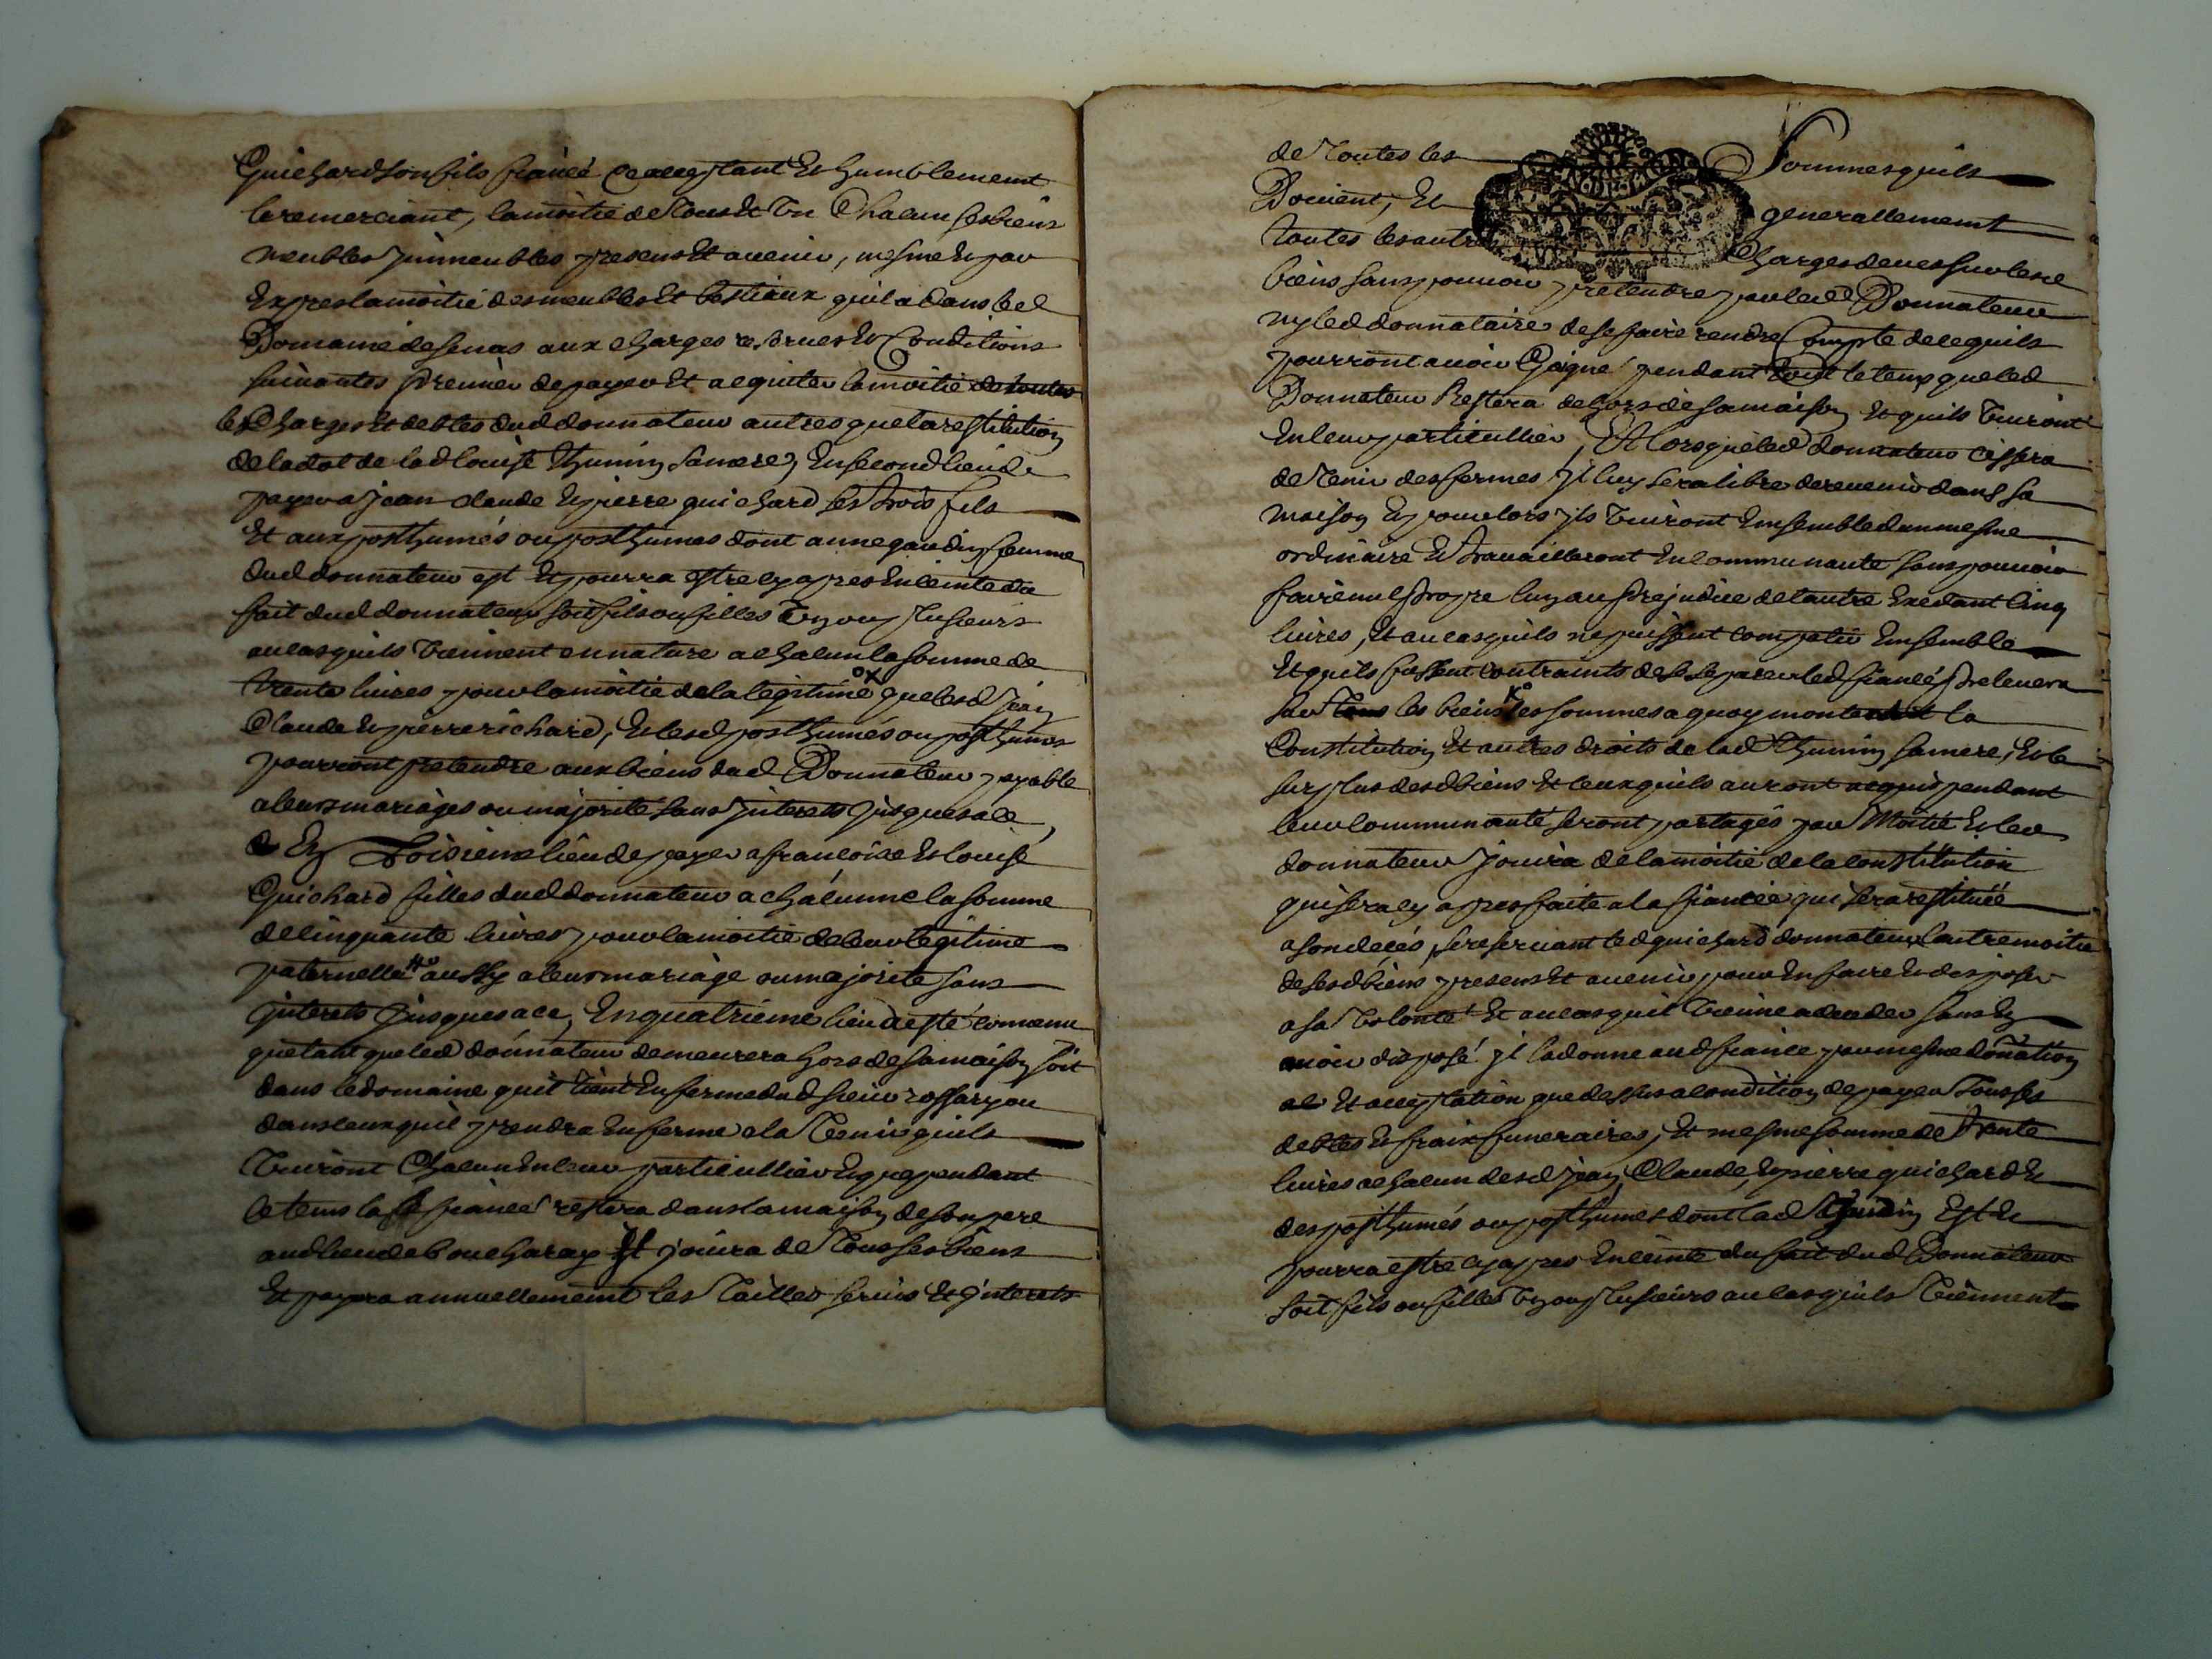 Guichard son fils fiancé ce acceptant Et humblement
le remerciant, la moitie de tous Et un Chacun ses biens
meubles immeubles presens Et avenir, mesme Et par
Expres la moitié des meubles Et bestiaux quil a dans led
Domaine de senas aux charges reserves Et Conditions
suivantes premier de payer Et acquiter la moitié de toutes
les Charges Et debtes dud donnateur autres que la restitution
de la dot de lad louise Thunin sa mere, En second lieu de
payer a jean claude Et pierre guichard ses trois fils
Et aux posthumés ou posthumes dont anne gaudin femme
dud donnateur est Et pourra estre cy apres Enceinte du
fait dud donnateur soit fils ou filles un ou plusieurs
au cas quils viennent en nature a chacun la somme de
trente livres pour la moitie de la legitime que lesd jean
Claude Et pierre richard, Et lesd posthumés ou posthumes
pourront pretendre aux biens dud Donnateur payable
a leurs mariages ou majorité sans interets jusques a ce,
En troisieme lieu de payer a francoise Et louise
Guichard filles dud donnateur a chacunne la somme
de cinquante livres pour la moitie de leur legitime
paternelle aussy a leur mariage ou majorite sans
interets jusques a ce, En quatrieme lieu a esté convenu
que tant que led donnateur demeurera hors de sa maison soit
dans le domaine quil tient En ferme dud sieur rossary ou
dans ceux quil prendra En ferme a la tenir quils
vivront Chacun En leur particullier Et que pendant
le tems la fiancé restera dans la maison de son pere
aud lieu de boucharay Et jouira de tous ses biens
Et payera annuellement les tailles servis Et interets
de toutes les sommes quils
Doivent, Et generallement
toutes les autres Charges deues sur lesd
biens sans pouvoir pretendre par led Donnateur
ny led donnataire de se faire rendre Compte de ce quils
pourront avoir Gaigné pendant tout le temp que led
Donnateur Restera dehors de sa maison Et quils vivront
En leur particullier, Et lors que led donnateur cessera
de tenir des fermes il luy sera libre de revenir dans sa
maison Et pour lors ils vivront Ensemble dun mesme
ordinaire Et travailleront En communauté sans pouvoir
faire nul propre lun au prejudice de lautre Excedant cinq
livres, Et au cas quils ne puissent compatir Ensemble
Et quils fussent contraints de se separer led fiancé prelevera
sur tous les biens les sommes a quoy monte la
Constitution Et autres droits de lad Thunin sa mere, Et le
surplus desd biens Et ceux quils auront acquis pendant
leur communauté seront partagés par Moitié Et led
donnateur jouira de la moitie de la constitution
qui sera cy apres faite a la fiancée qui sera restituée
a son decés, se reservant led guichard donnateur lautre moitie
de sesd biens presens Et avenir pour En faire Et disposer
a sa volonté Et au cas quil vienne a deceder sans En
avoir disposé il la donne aud fiancé par mesme donnation
Et acceptation que dessus a condition de payer tous ses
debtes Et fraix funeraires, Et mesme somme de trente
livres a chacun desd jean, Claude, Et pierre guichard Et
des posthumés ou posthumes dont lad Gaudin Est Et
pourra estre cy apres Enceinte du fait dud Donnateur
soit fils ou filles un ou plusieurs au cas quils viennent